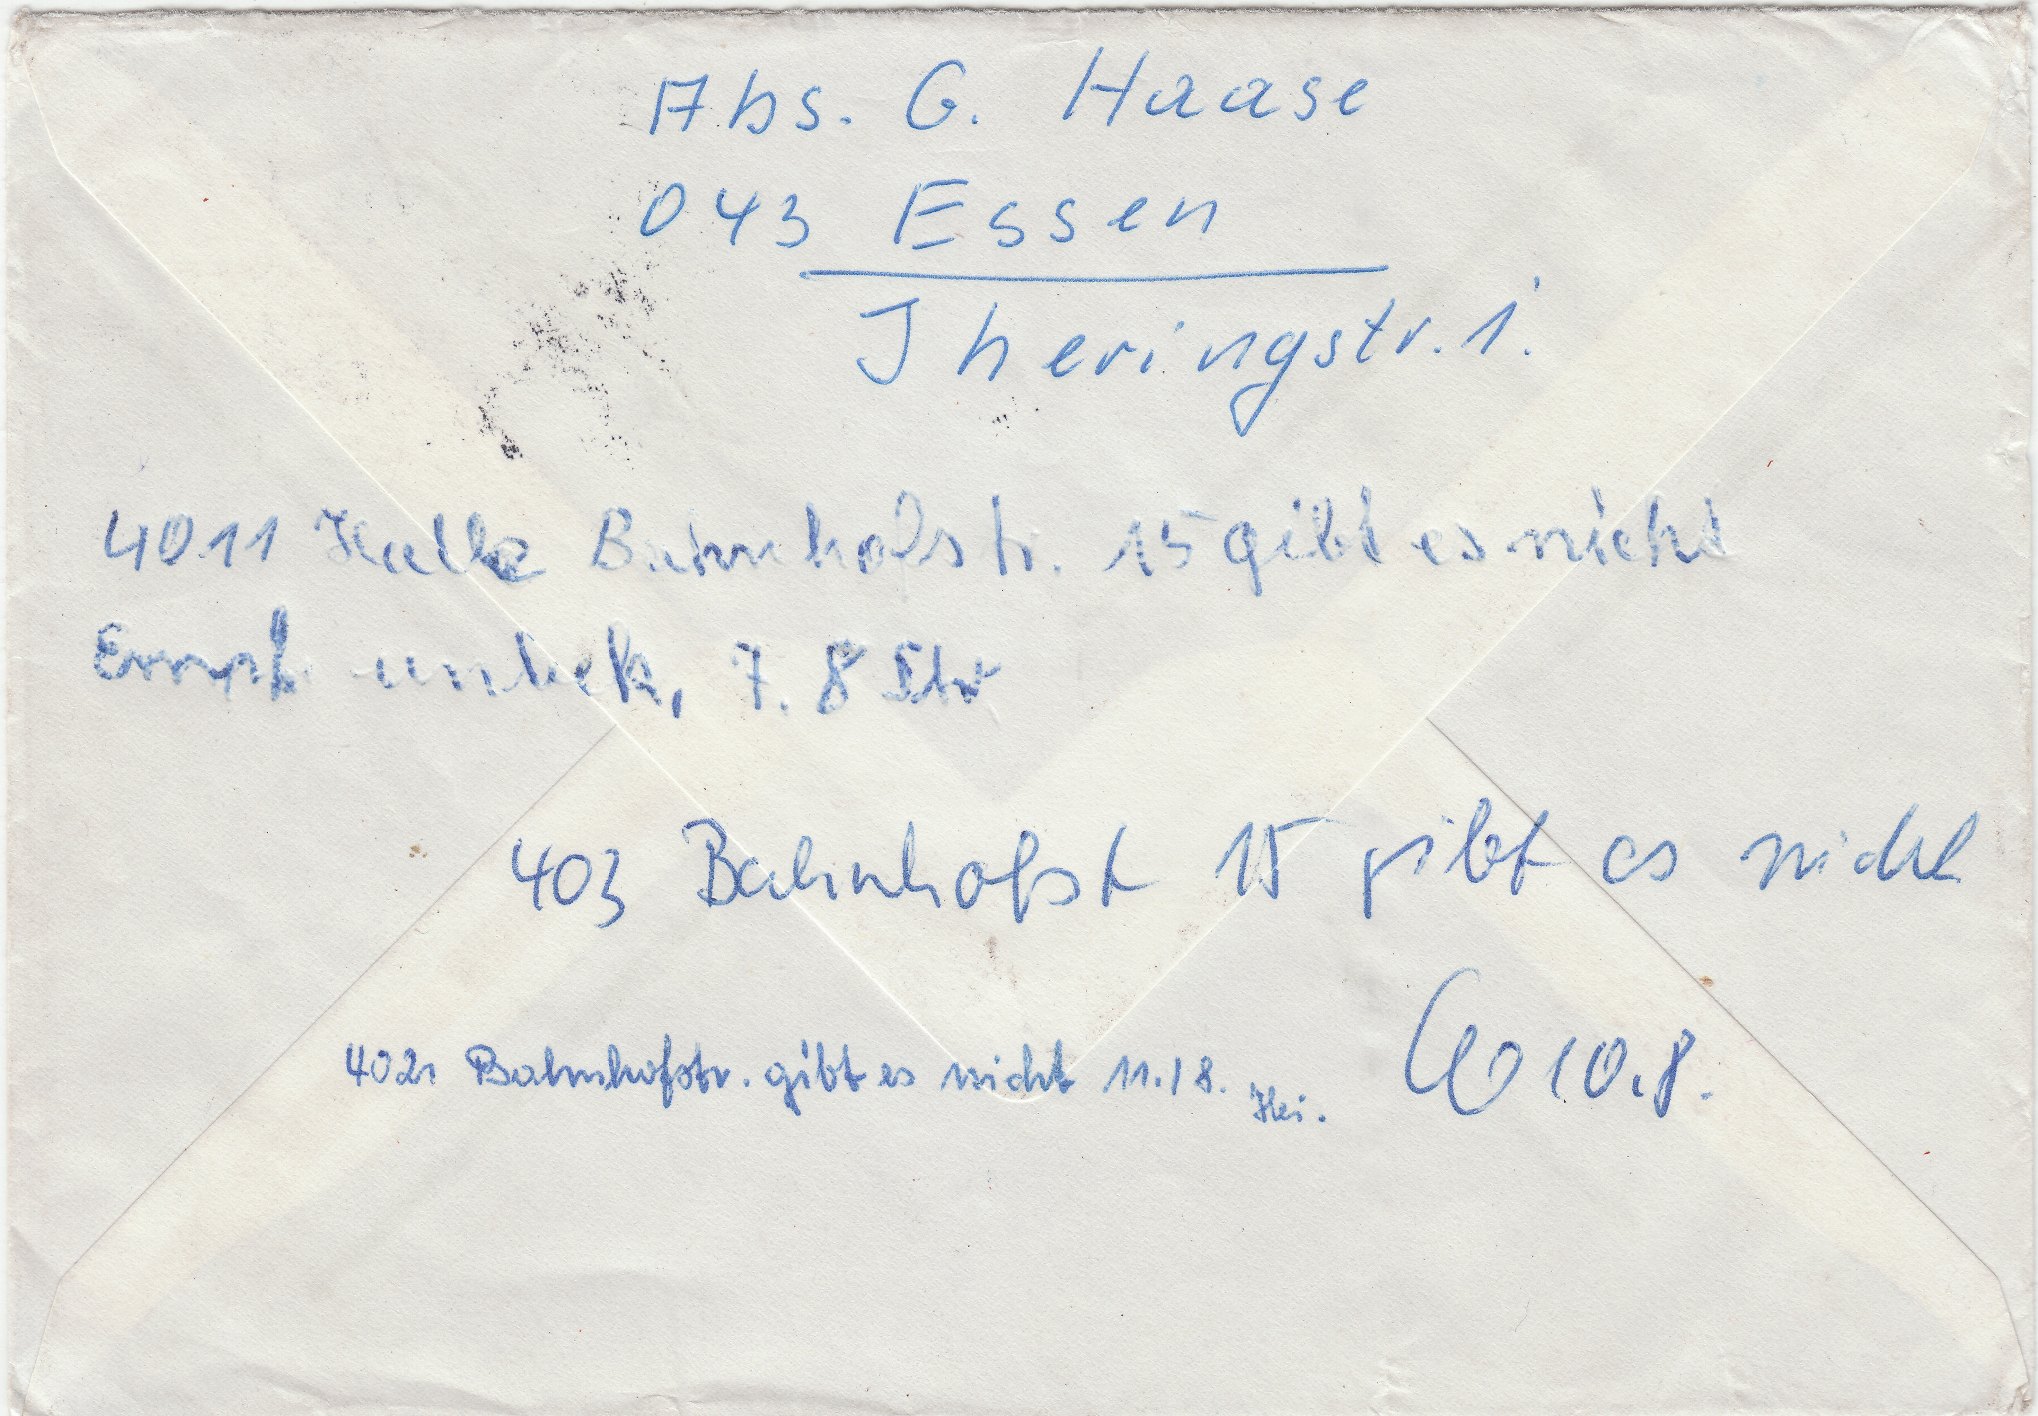 Abs. G. Haase
043 Essen
Jheringstr. 1.
4011 Halle Bahnhofstr. 15 gibt es nicht
Empf. unbek, 7. 8
403 Bahnhofst 15 gibt es nicht
10.8.
402 Bahnhofstr. gibt es nicht 11./8. Hei.